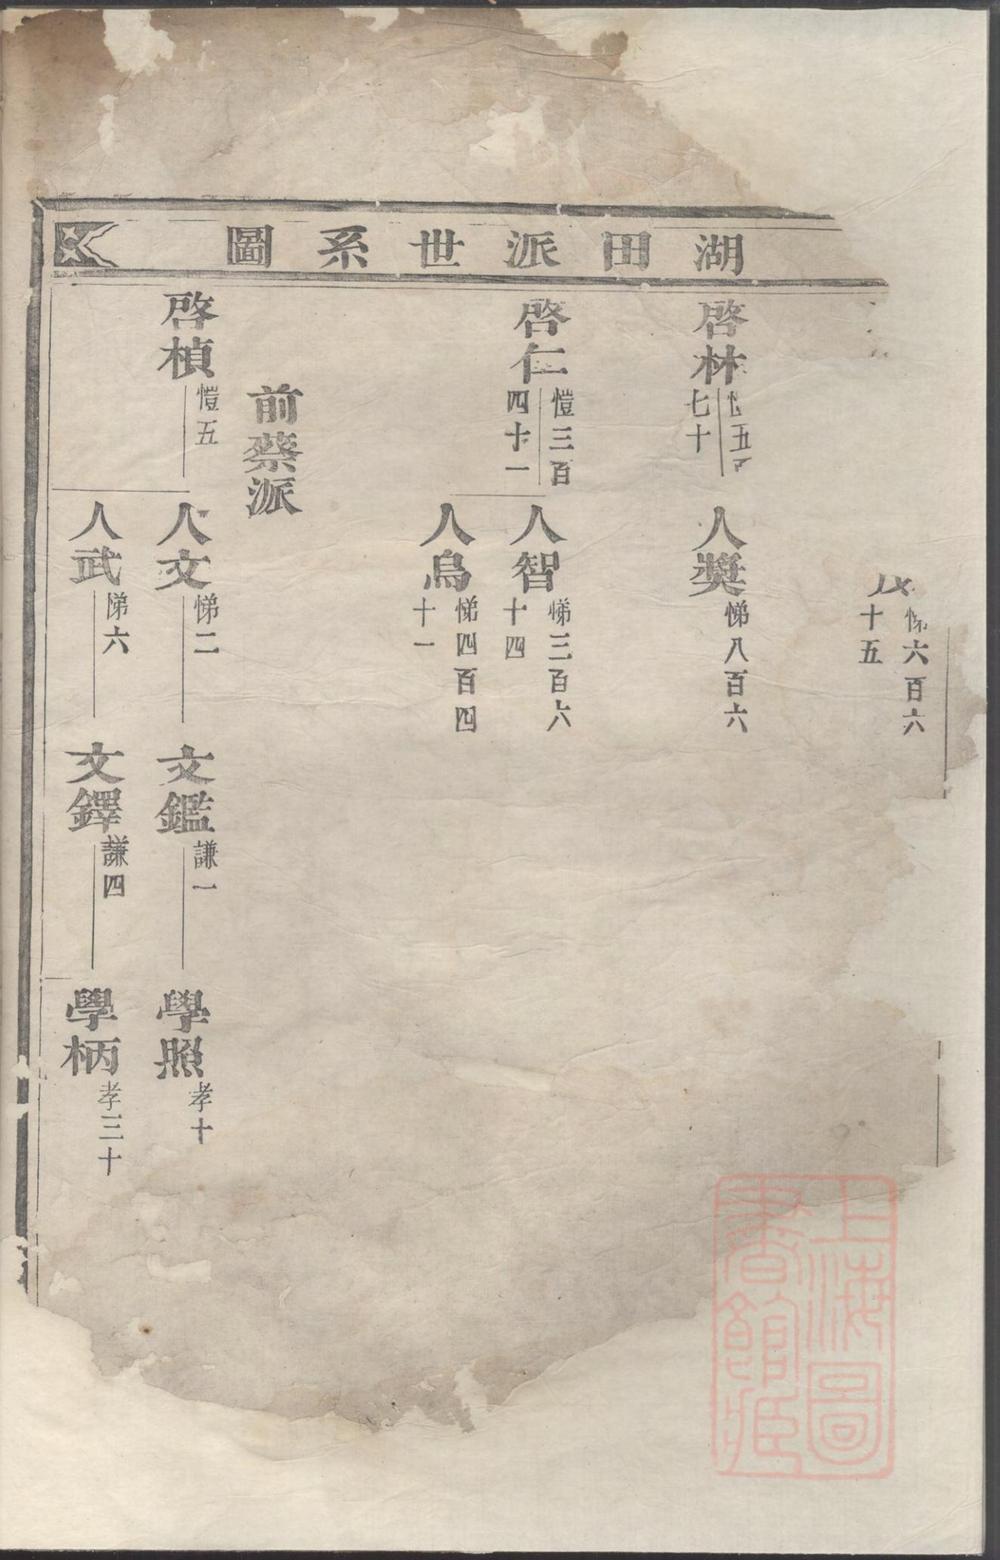 湖田派世系圖
六百六
十五
啓林
五
七十
人獎
悌八百六
啓仁
愷三百
四十一
人智
悌三百六
十四
人烏
悌四百四
十一
前蔡派
啓楨
愷五
人文
悌二
文鑑
謙一
學照
孝十
人武
悌六
文鐸
謙四
學柄
孝三十
上海圖
書館藏